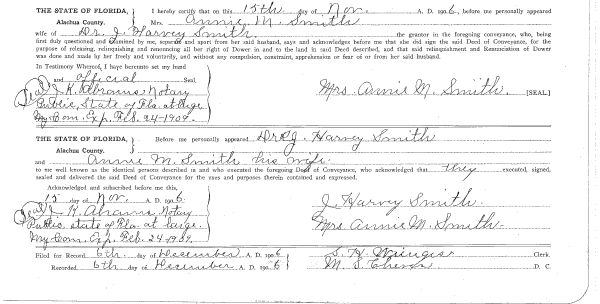 THE STATE OF FLORIDA, I hereby certify that on this 15th day of Nov. A. D. 1906, before me personally appeared
Alachua County. Mrs. Annie M. Smith
wife of Dr. J. Harvey Smith the grantor in the foregoing conveyance, who, being
first duly questioned and examined by me, separate and apart from her said husband, says and acknowledges before me that she did sign the said Deed of Conveyance, for the
purpose of releasing, relinquishing and renouncing all her right of Dower in and to the land in said Deed described, and that said relinquishment and Renunciation of Dower
was done and made by her freely and voluntarily, and without any compulsion, constraint, apprehension or fear of or from her said husband.
In Testimony Whereof, I have hereunto set my hand
and official Seal.
(Seal) J. K. Abrams Notary Mrs Annie M. Smith. [SEAL]
Public, State of Fla. at large
My Com. Exp. Feb. 24-1909.
THE STATE OF FLORIDA, Before me personally appeared Dr J. Harvey Smith
Alachua County.
and Annie M. Smith his wife.
to me well known as the identical persons described in and who executed the foregoing Deed of Conveyance, who acknowledged that they executed, signed,
sealed and delivered the said Deed of Conveyance for the uses and purposes therein contained and expressed.
Acknowledged and subscribed before me this,
15 day of Nov. A. D. 1906.
(Seal) J. K. Abrams Notary J. Harvey Smith.
Public, State of Fla. at large. Mrs Annie M. Smith.
My Com. Exp. Feb. 24 1909.
Filed for Record 6th. day of December A. D. 1906 S. H. Clerk.
Recorded 6th day of December A. D. 1906 M. S. D. C.